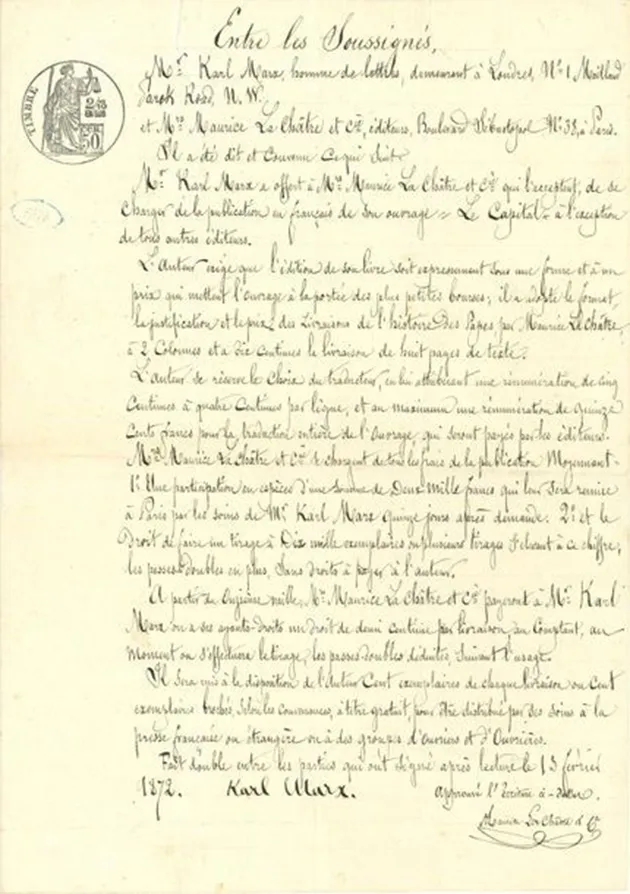 Entre les Soussignés,
TIMBRE
50
Mr. Karl Marx, homme de lettres, demeurant à Londres, No 1 Maitland
Park Road, N.W.
et Mrs. Maurice La Châtre et Cie, éditeurs, Boulevard Sébastopol No 38, à Paris.
Il a été dit et Convenu Ce qui Suit
Mr. Karl Marx a offert à Mrs. Maurice La Châtre et Cie qui l'acceptent, de se
charger de la publication en français de son ouvrage Le Capital à l'exception
de tous autres éditeurs.
L'Auteur exige que l'édition de son livre soit expressément sous une forme et à un
prix qui mettent l'ouvrage à la portée des plus petites bourses; il a adopté le format,
la justification et le prix des Livraisons de l'histoire Des Papes par Maurice La Châtre,
à 2 Colonnes et à Dix Centimes la livraison de huit pages de texte.
L'Auteur se réserve le Choix du traducteur, en lui attribuant une rémunération de cinq
Centimes à quatre Centimes par ligne, et au maximum une rémunération de quinze
Cents francs pour la traduction entière de l'Ouvrage, qui seront payés par les éditeurs.
Mrs. Maurice La Châtre et Cie se chargent de tous les frais de la publication Moyennant
1o Une participation en espèces d'une Somme de Deux Mille francs qui leur sera remise
à Paris par les soins de Mr. Karl Marx quinze jours après demande. 2o et le
Droit de faire un tirage à Dix mille exemplaires ou plusieurs tirages s'élevant à ce chiffre,
les passes doubles en plus, Sans droits à payer à l'auteur.
A partir du Onzième mille, Mrs. Maurice La Châtre et Cie payeront à Mr. Karl
Marx ou à ses ayants-droits un droit de demi centime par livraison, au Comptant, au
Moment où s'effectuera le tirage, les passes doubles déduites, Suivant l'usage.
Il Sera mis à la disposition de l'Auteur Cent exemplaires de chaque livraison ou Cent
exemplaires brochés, Selon les Convenances, à titre gratuit, pour être distribué par ses soins à la
presse française ou étrangère ou à des groupes d'Ouvriers et d'Ouvrières.
Fait double entre les parties qui ont signé après lecture le 13 février
1872. Karl Marx. Approuvé l'Ecriture
Maurice La Châtre & Cie